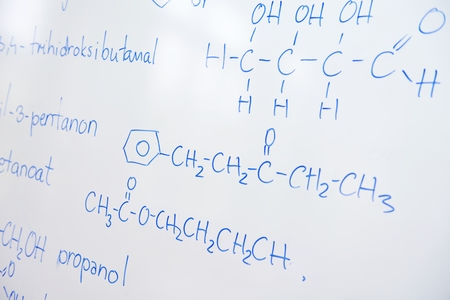 OH OH OH O
3,4-trihidroksibutanal H-C-C-C-C
H
H H H
il-3-pentanon O
CH₂-CH₂-C-CH₂-CH₃
etanoat O
CH₃-C-O-CH₂CH₂CH₂CH
CH₂OH propanol